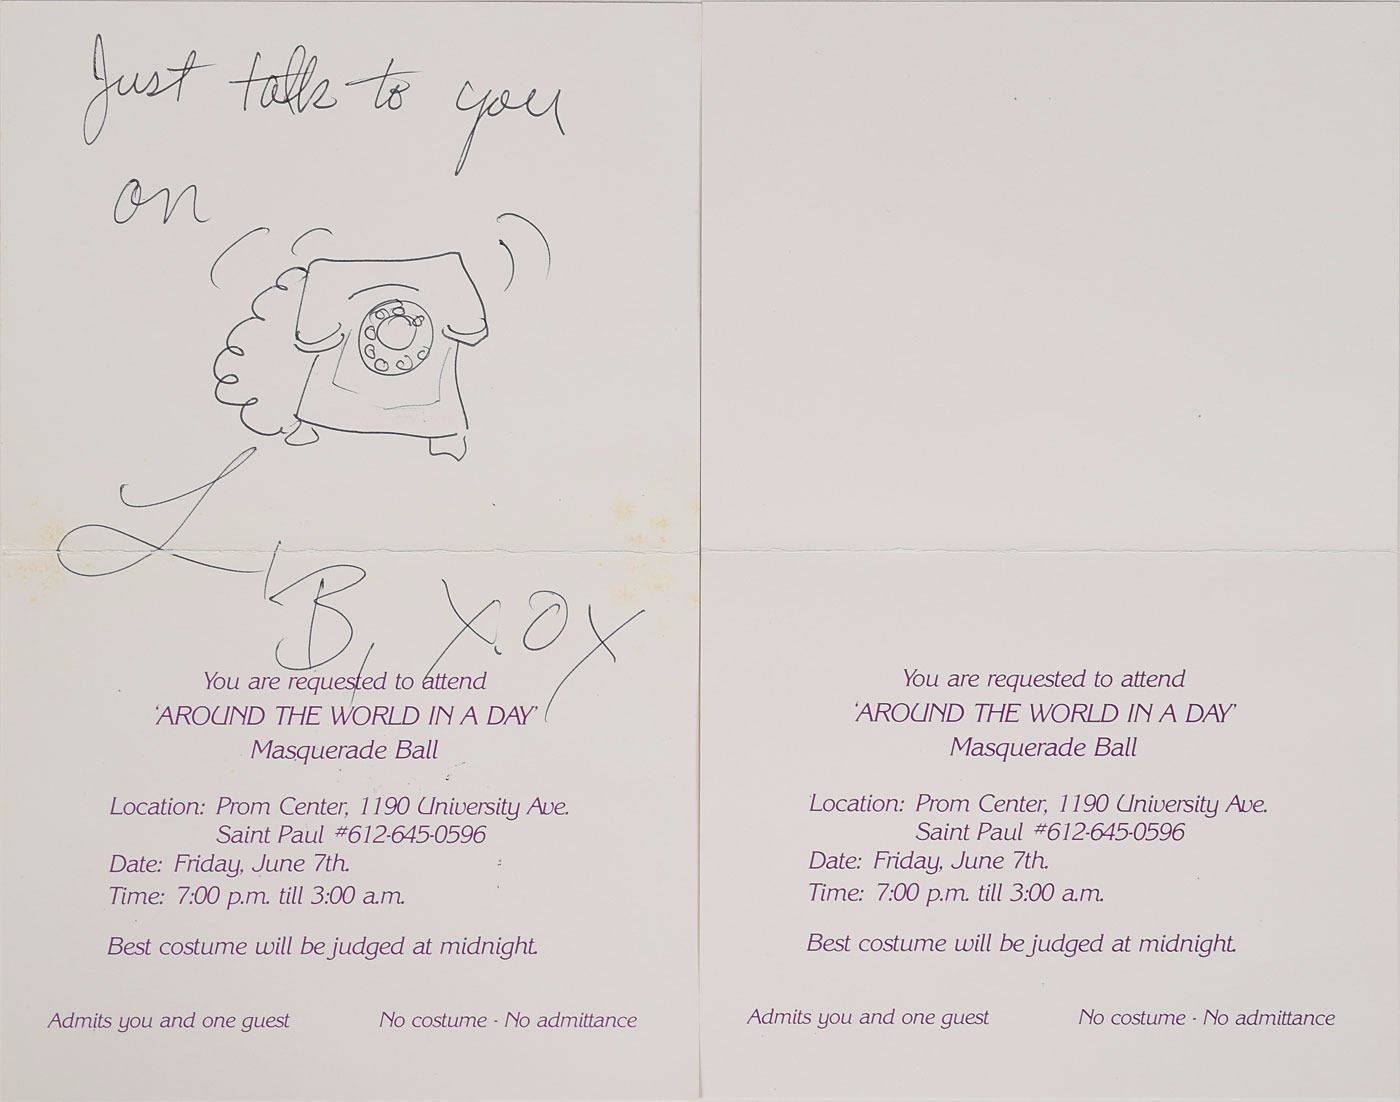 Just talk to you
on
L, B, X.OX
You are requested to attend
'AROUND THE WORLD IN A DAY'
Masquerade Ball
Location: Prom Center, 1190 University Ave.
Saint Paul #612-645-0596
Date: Friday, June 7th.
Time: 7:00 p.m. till 3:00 a.m.
Best costume will be judged at midnight.
Admits you and one guest
No costume - No admittance
You are requested to attend
'AROUND THE WORLD IN A DAY'
Masquerade Ball
Location: Prom Center, 1190 University Ave.
Saint Paul #612-645-0596
Date: Friday, June 7th.
Time: 7:00 p.m. till 3:00 a.m.
Best costume will be judged at midnight.
Admits you and one guest
No costume - No admittance